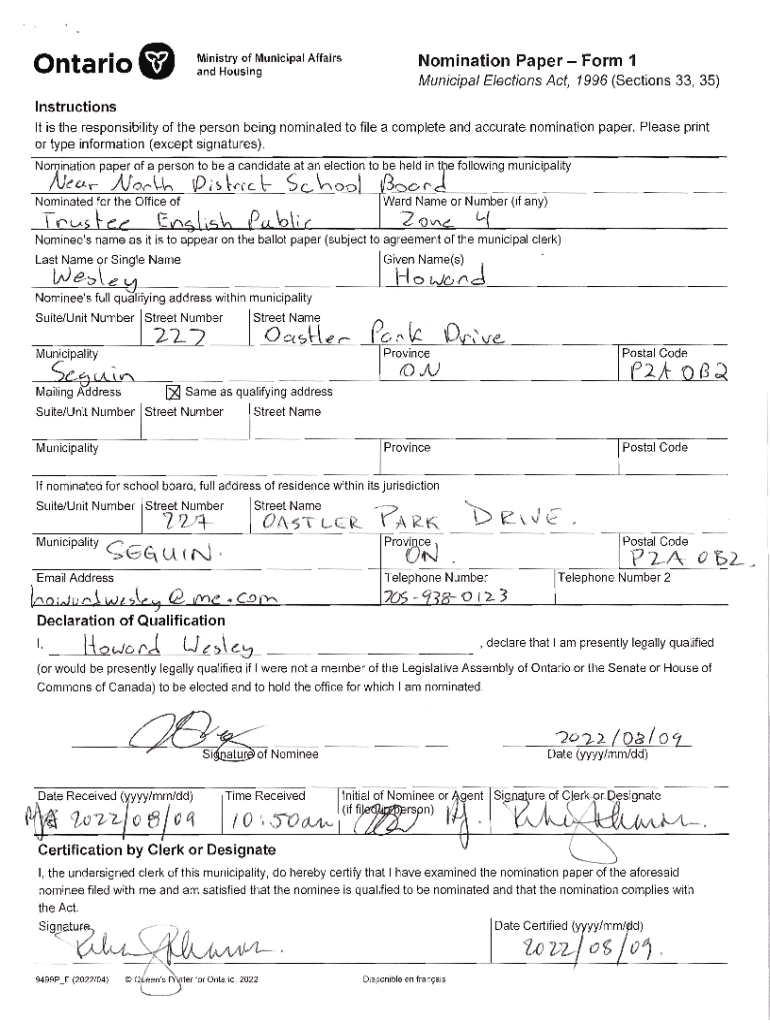 Ontario
Ministry of Municipal Affairs
and Housing
Nomination Paper – Form 1
Municipal Elections Act, 1996 (Sections 33, 35)
Instructions
It is the responsibility of the person being nominated to file a complete and accurate nomination paper. Please print
or type information (except signatures).
Nomination paper of a person to be a candidate at an election to be held in the following municipality
Near North District School Board
Nominated for the Office of Ward Name or Number (if any)
Trustee English Public Zone 4
Nominee's name as it is to appear on the ballot paper (subject to agreement of the municipal clerk)
Last Name or Single Name Given Name(s)
Wesley Howard
Nominee's full qualifying address within municipality
Suite/Unit Number Street Number Street Name
227 Oastler Park Drive
Municipality Province Postal Code
Seguin ON P2A 0B2
Mailing Address Same as qualifying address
Suite/Unit Number Street Number Street Name
Municipality Province Postal Code
If nominated for school board, full address of residence within its jurisdiction
Suite/Unit Number Street Number Street Name
227 OASTLER PARK DRIVE.
Municipality Province Postal Code
SEGUIN. ON. P2A 0B2.
Email Address Telephone Number Telephone Number 2
howardwesley@me.com 705-938-0123
Declaration of Qualification
I, Howard Wesley , declare that I am presently legally qualified
(or would be presently legally qualified if I were not a member of the Legislative Assembly of Ontario or the Senate or House of
Commons of Canada) to be elected and to hold the office for which I am nominated.
2022/08/09
Signature of Nominee Date (yyyy/mm/dd)
Date Received (yyyy/mm/dd) Time Received Initial of Nominee or Agent Signature of Clerk or Designate
(if filed in person)
2022/08/09 10:50am
Certification by Clerk or Designate
I, the undersigned clerk of this municipality, do hereby certify that I have examined the nomination paper of the aforesaid
nominee filed with me and am satisfied that the nominee is qualified to be nominated and that the nomination complies with
the Act.
Signature Date Certified (yyyy/mm/dd)
2022/08/09.
9499P_E (2022/04) © Queen's Printer for Ontario, 2022 Disponible en français